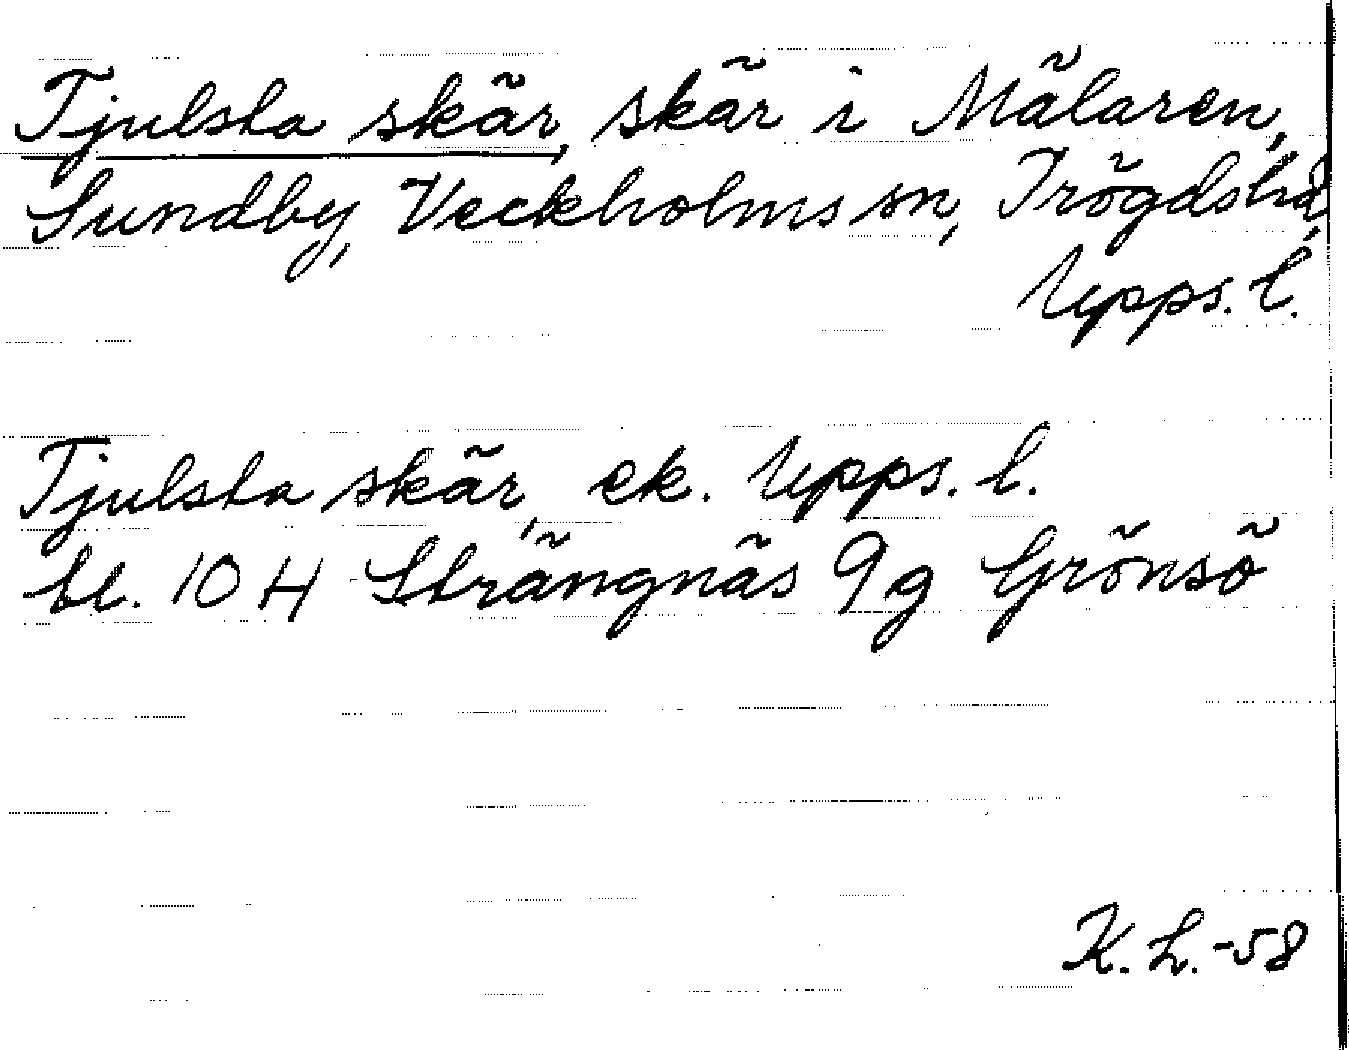 Tjulsta skär, skär i Mälaren,
Sundby, Veckholms sn, Trögds hd,
Upps. l.
Tjulsta skär, ek. Upps. l.
bl. 10 H Strängnäs 9 g Grönsö
K. L. -58